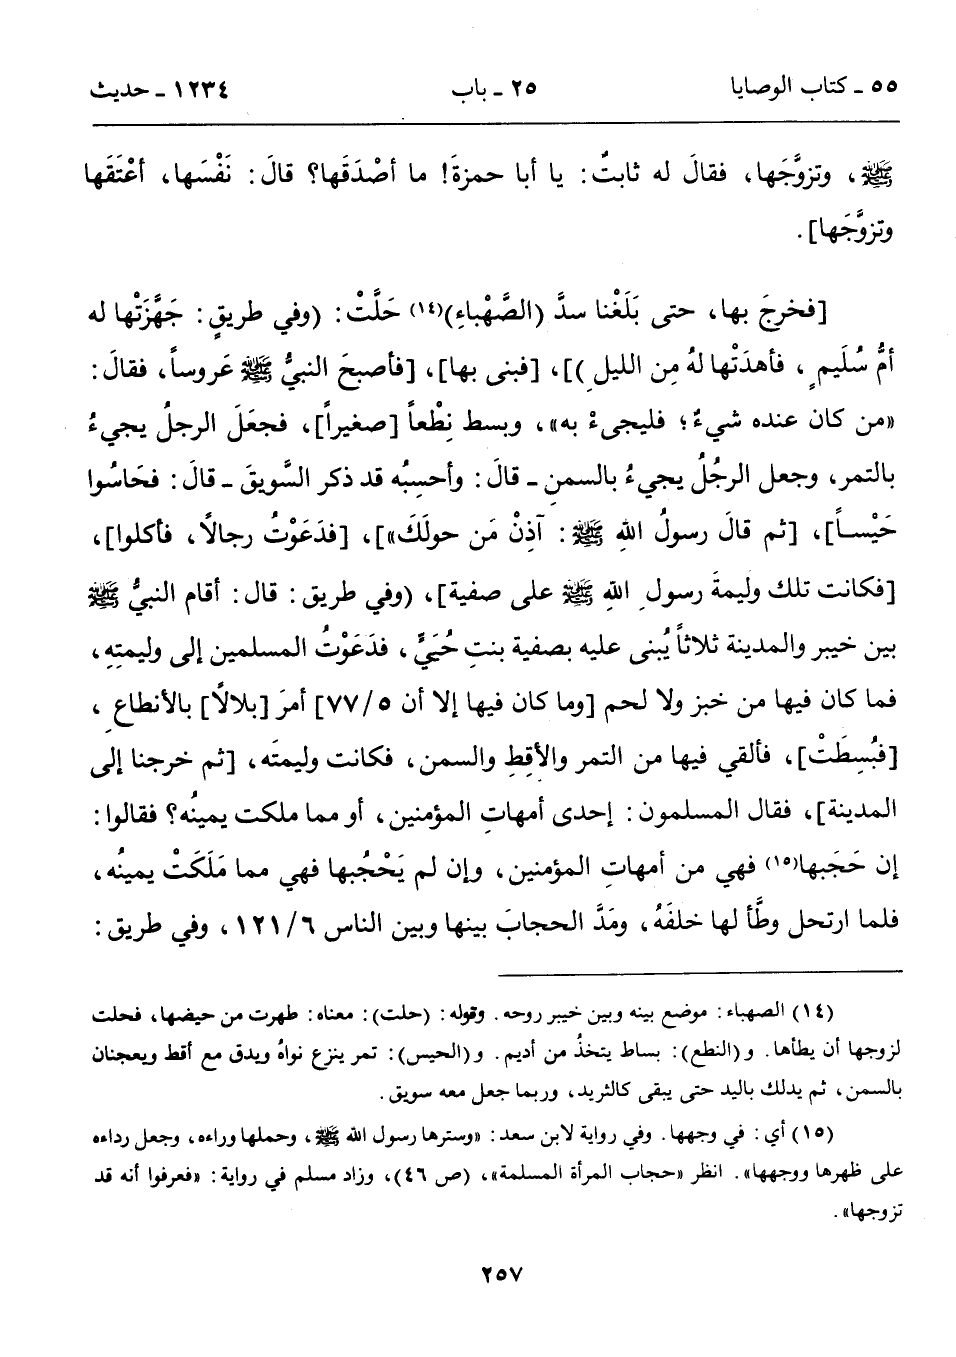 ٥٥ - كتاب الوصايا ٢٥ - باب ١٢٣٤ - حديث
ﷺ، وتزوَّجَها، فقالَ له ثابتٌ: يا أبا حمزةَ! ما أصْدَقَها؟ قالَ: نَفْسَها، أعْتَقَها
وتزوَّجَها].
[فخرجَ بها، حتى بَلَغْنا سدَّ (الصَّهْباءِ)(١٤) حَلَّتْ: (وفي طريقٍ: جَهَّزَتْها له
أمُّ سُلَيمٍ، فأهدَتْها لهُ مِن الليلِ)]، [فبنى بها]، [فأصبحَ النبيُّ ﷺ عَروساً، فقالَ:
«من كان عنده شيءٌ؛ فليجىءْ به»، وبسط نِطْعاً [صغيراً]، فجعَلَ الرجلُ يجيءُ
بالتمر، وجعل الرجُلُ يجيءُ بالسمنِ - قالَ: وأحسِبُه قد ذكر السَّويقَ - قالَ: فحَاسُوا
حَيْساً]، [ثم قالَ رسولُ اللهِ ﷺ: آذِنْ مَن حولَكَ»]، [فدَعَوْتُ رجالاً، فأكلوا]،
[فكانت تلك وليمةَ رسولِ اللهِ ﷺ على صفية]، (وفي طريق: قال: أقام النبيُّ ﷺ
بين خيبر والمدينة ثلاثاً يُبنى عليه بصفية بنتِ حُيَيٍّ، فدَعَوْتُ المسلمين إلى وليمتِهِ،
فما كان فيها من خبز ولا لحم [وما كان فيها إلا أن ٧٧/٥] أمرَ [بلالاً] بالأنطاعِ،
[فبُسِطَتْ]، فألقي فيها من التمر والأقِطِ والسمن، فكانت وليمتَه، [ثم خرجنا إلى
المدينة]، فقال المسلمون: إحدى أمهاتِ المؤمنين، أو مما ملكت يمينُه؟ فقالوا:
إن حَجَبها(١٥) فهي من أمهاتِ المؤمنين، وإن لم يَحْجُبها فهي مما مَلَكَتْ يمينُه،
فلما ارتحل وطَّأ لها خلفَهُ، ومَدَّ الحجابَ بينها وبين الناس ١٢١/٦، وفي طريق:
(١٤) الصهباء: موضع بينه وبين خيبر روحه. وقوله: (حلت): معناه: طهرت من حيضها، فحلت
لزوجها أن يطأها. و(النطع): بساط يتخذُ من أديم. و(الحيس): تمر ينزع نواهُ ويدق مع أقط ويعجنان
بالسمن، ثم يدلك باليد حتى يبقى كالثريد، وربما جعل معه سويق.
(١٥) أي: في وجهها. وفي رواية لابن سعد: «وسترها رسول الله ﷺ، وحملها وراءه، وجعل رداءه
على ظهرها ووجهها». انظر «حجاب المرأة المسلمة»، (ص ٤٦)، وزاد مسلم في رواية: «فعرفوا أنه قد
تزوجها».
٢٥٧